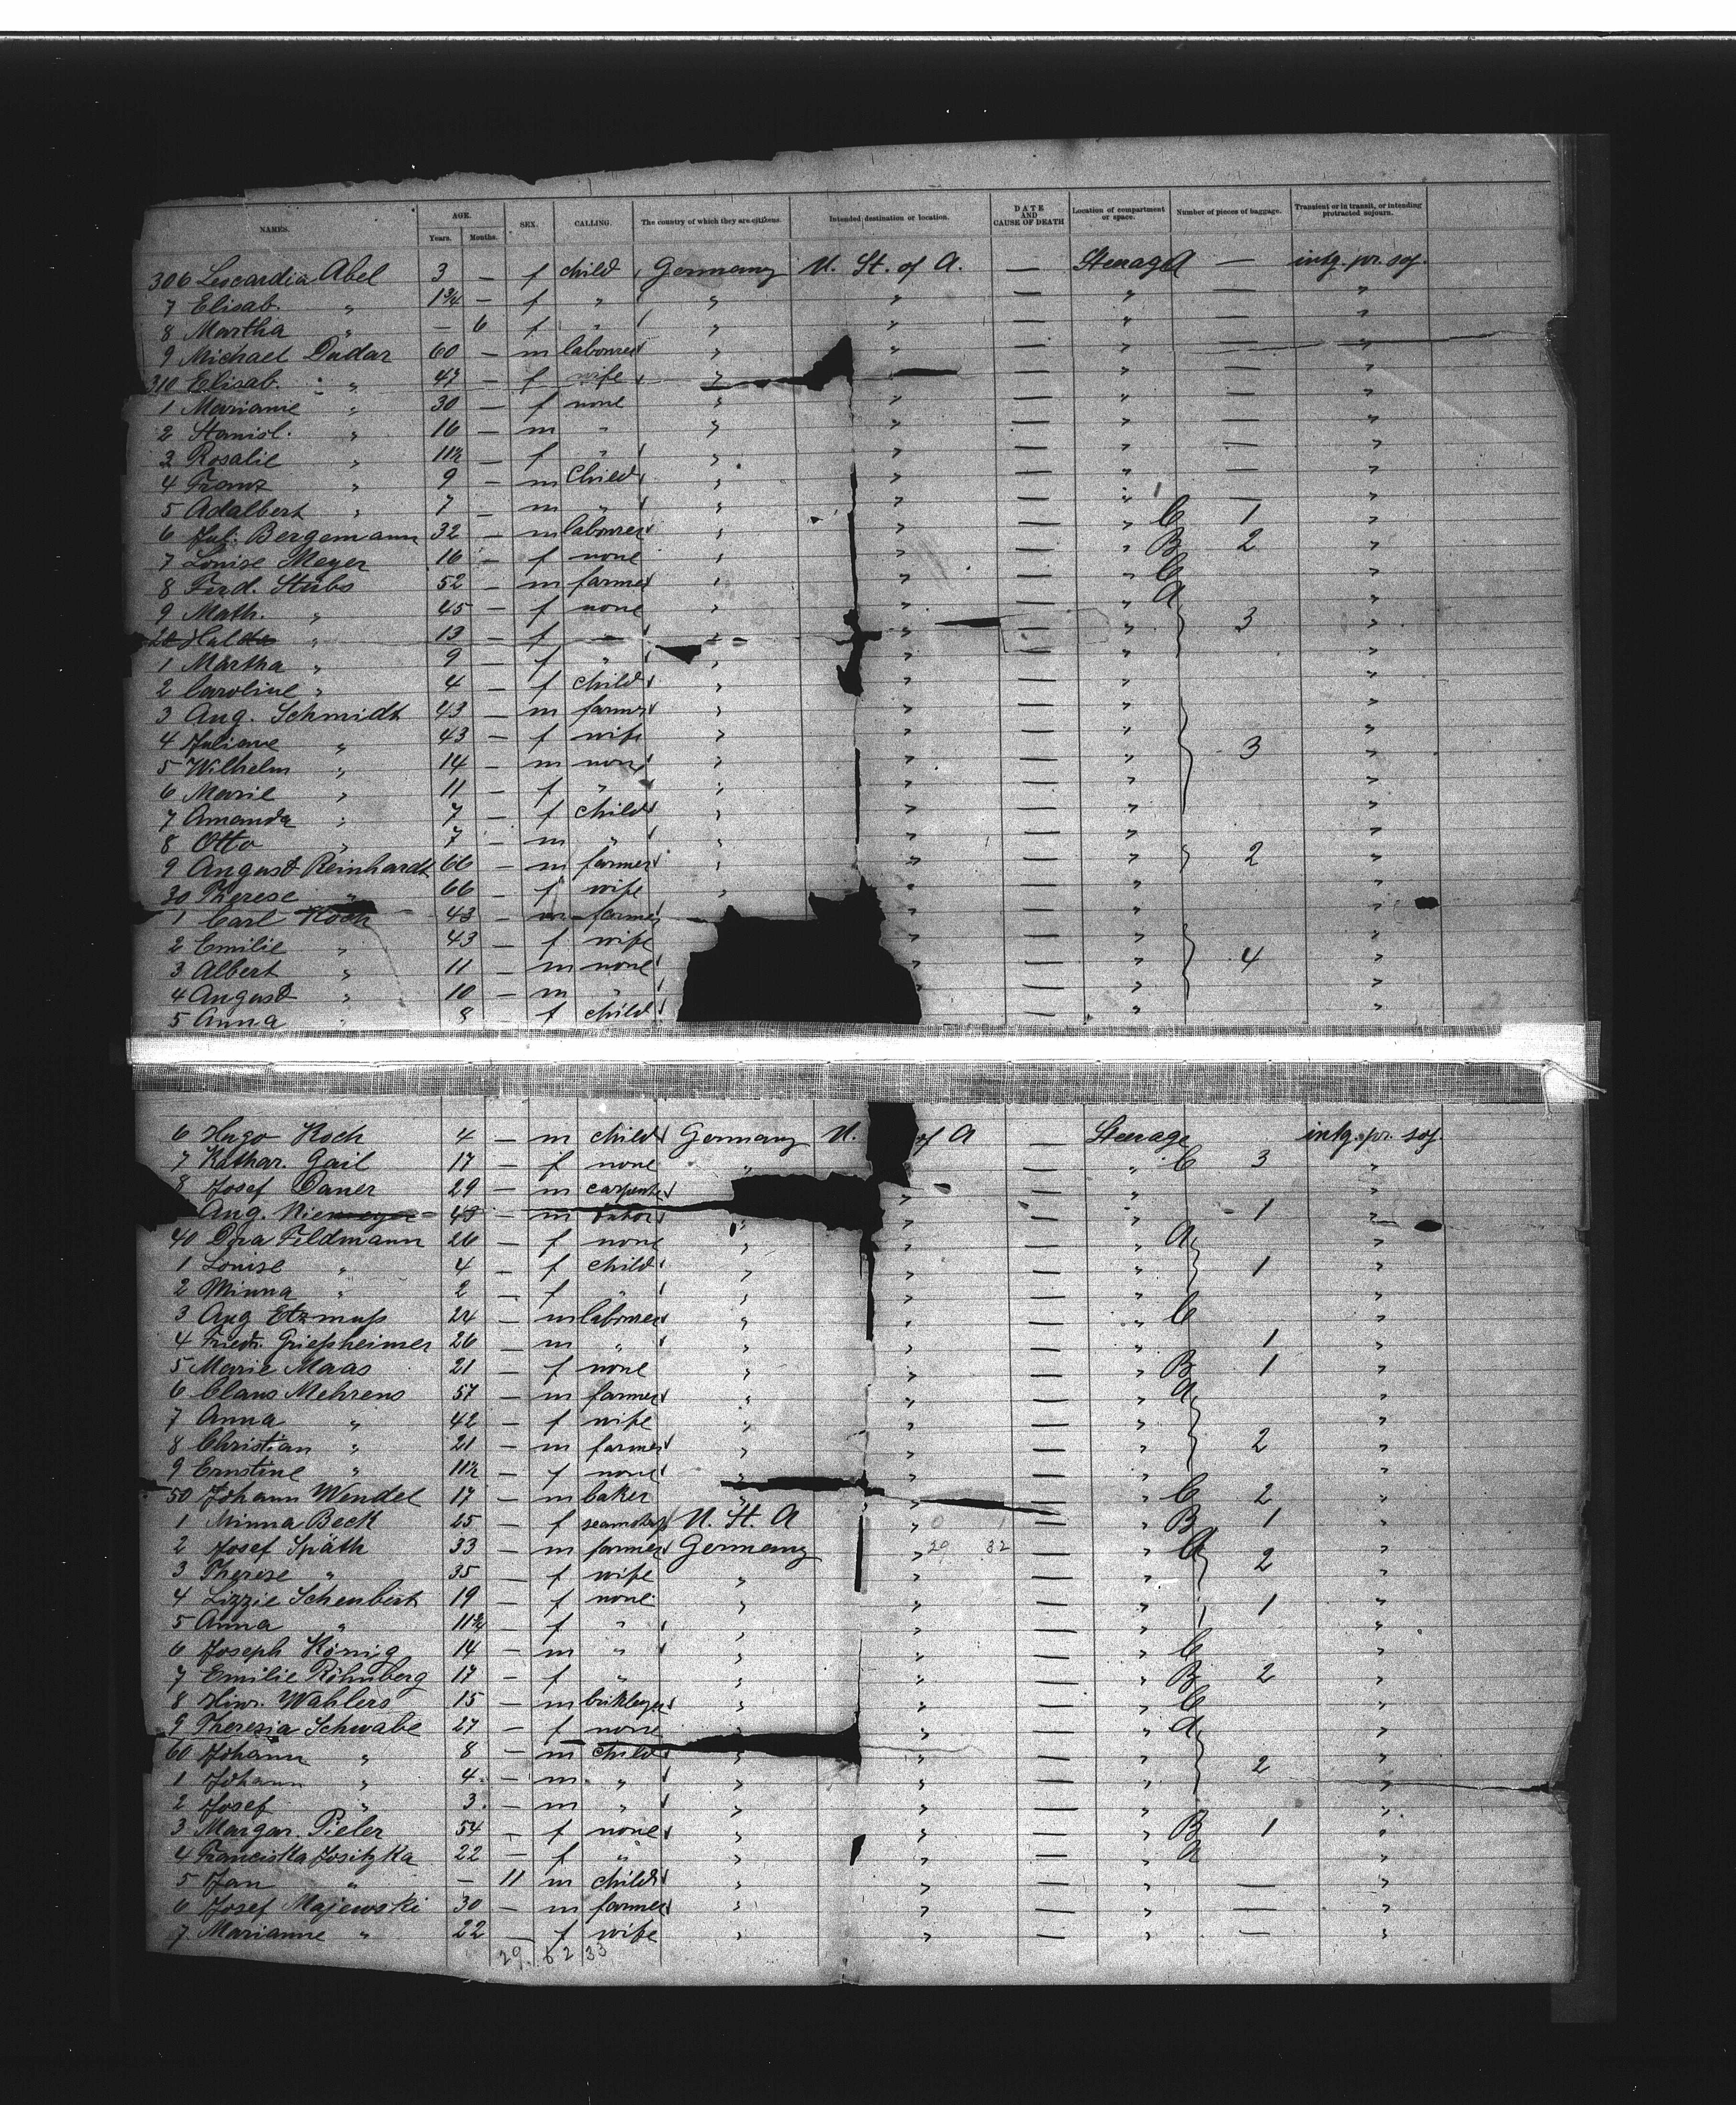 NAMES. AGE. Years. Months. SEX. CALLING. The country of which they are citizens. Intended destination or location. DATE AND CAUSE OF DEATH Location of compartment or space. Number of pieces of baggage. Transient or in transit, or intending protracted sojourn.
306 Leocardia Abel 3 — f child Germany U. St. of A. — Steerage A — intg. pr. soj.
7 Elisab. " 1 3/4 — f " " " — " — "
8 Martha " — 6 f " " " — " — "
9 Michael Dudar 60 — m labourer " " — " — "
310 Elisab. " 47 — f wife " " — " — "
1 Marianne " 30 — f none " " — " — "
2 Stanisl. " 16 — m " " " — " — "
3 Rosalie " 11 1/2 — f " " " — " — "
4 Franz " 9 — m Child " " — " — "
5 Adalbert " 7 — m " " " — " — "
6 Jul. Bergemann 32 — m labourer " " — " C 1 "
7 Louise Meyer 16 — f none " " — " B 2 "
8 Ferd. Stubs 52 — m farmer " " — " C "
9 Math. " 45 — f none " " — " A "
20 Hulda " 13 — f " " " — " 3 "
1 Martha " 9 — f " " " — " "
2 Caroline " 4 — f child " " — " "
3 Aug. Schmidt 43 — m farmer " " — " "
4 Juliane " 43 — f wife " " — " 3 "
5 Wilhelm " 14 — m none " " — " "
6 Marie " 11 — f " " " — " "
7 Amanda " 7 — f child " " — " "
8 Otto " 7 — m " " " — " "
9 August Reinhardt 66 — m farmer " " — " 2 "
30 Therese " 66 — f wife " " — " "
1 Carl Koch 43 — m farmer — " "
2 Emilie " 43 — f wife — " "
3 Albert " 11 — m none " — " 4 "
4 August " 10 — m " " — " "
5 Anna " 8 — f child — " "
6 Hugo Koch 4 — m child Germany U. of A — Steerage intg. pr. soj.
7 Kathar. Gail 17 — f none " — " C 3 "
8 Josef Daner 29 — m carpenter " — " "
Aug. Niemeyer 43 — m " " — " 1 "
40 Dora Feldmann 26 — f none " " — " A "
1 Louise " 4 — f child " " — " 1 "
2 Minna " 2 — f " " " — " "
3 Aug Etzmuß 24 — m labourer " " — " C "
4 Friedr. Grießheimer 26 — m " " " — " 1 "
5 Marie Maas 21 — f none " " — " B 1 "
6 Claus Mehrens 57 — m farmer " " — " A "
7 Anna " 42 — f wife " " — " "
8 Christian " 21 — m farmer " " — " 2 "
9 Ernstine " 11 1/2 — f none " " — " "
50 Johann Wendel 17 — m baker " " — " C 2 "
1 Minna Beck 25 — f seamstress U. St. A " — " B 1 "
2 Josef Späth 33 — m farmer Germany " 29 32 — " A 2 "
3 Therese " 35 — f wife " " — " "
4 Lizzie Scheubert 19 — f none " " — " 1 "
5 Anna " 11 3/4 — f " " " — " "
6 Joseph König 14 — m " " " — " C "
7 Emilie Röhnberg 17 — f " " " — " B 2 "
8 Hinr. Wahlers 15 — m bricklayer " " — " C "
9 Theresia Schwabe 27 — f none " " — " A "
60 Johann " 8 — m child " " — " 2 "
1 Johann " 4 — m " " " — " "
2 Josef " 3 — m " " " — " "
3 Margar. Pieler 54 — f none " " — " B 1 "
4 Franciska Jositzka 22 — f " " " — " A "
5 Jan " — 11 m child " " — " — "
6 Josef Majewski 30 — m farmer " " — " — "
7 Marianne " 22 — f wife " " — " — "
29 62 33